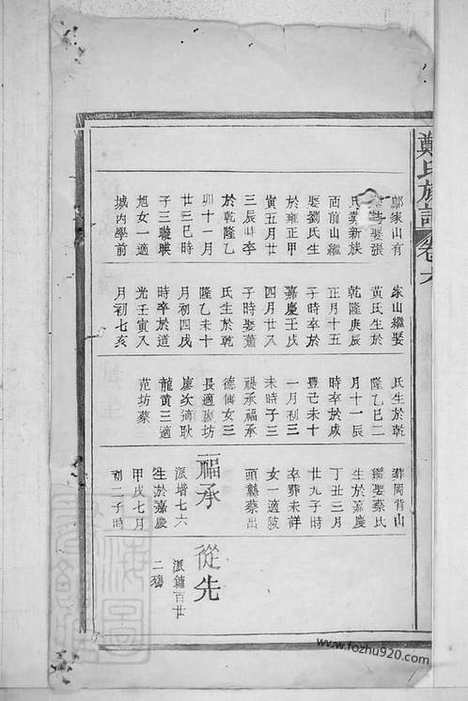 鄭氏族譜 卷六
鄒家山有
娶張
氏葬新族
面前山繼
娶劉氏生
於雍正甲
寅五月廿
三辰時李
於乾隆乙
卯十一月
廿三巳時
子三璇暎
旭女一適
城内學前
家山繼娶
黃氏生於
乾隆庚辰
正月十五
子時卒於
嘉慶壬戌
四月廿八
子時娶葉
氏生於乾
隆乙未十
月初四戌
時卒於道
光壬寅八
月初七亥
氏生於乾
隆乙巳二
月十一辰
時卒於咸
豐己未十
一月初三
未時子三
福承福承
德仙女三
長適磡坊
廖次適耿
龍黃三適
范坊蔡
葬岡背山
繼娶蔡氏
生於嘉慶
丁丑三月
廿九子時
卒葬未詳
女一適陂
頭縣蔡出
福承
派增七六
生於嘉慶
甲戌七月
初二子時
從先
派鏞百廿
二
www.fozhu920.com